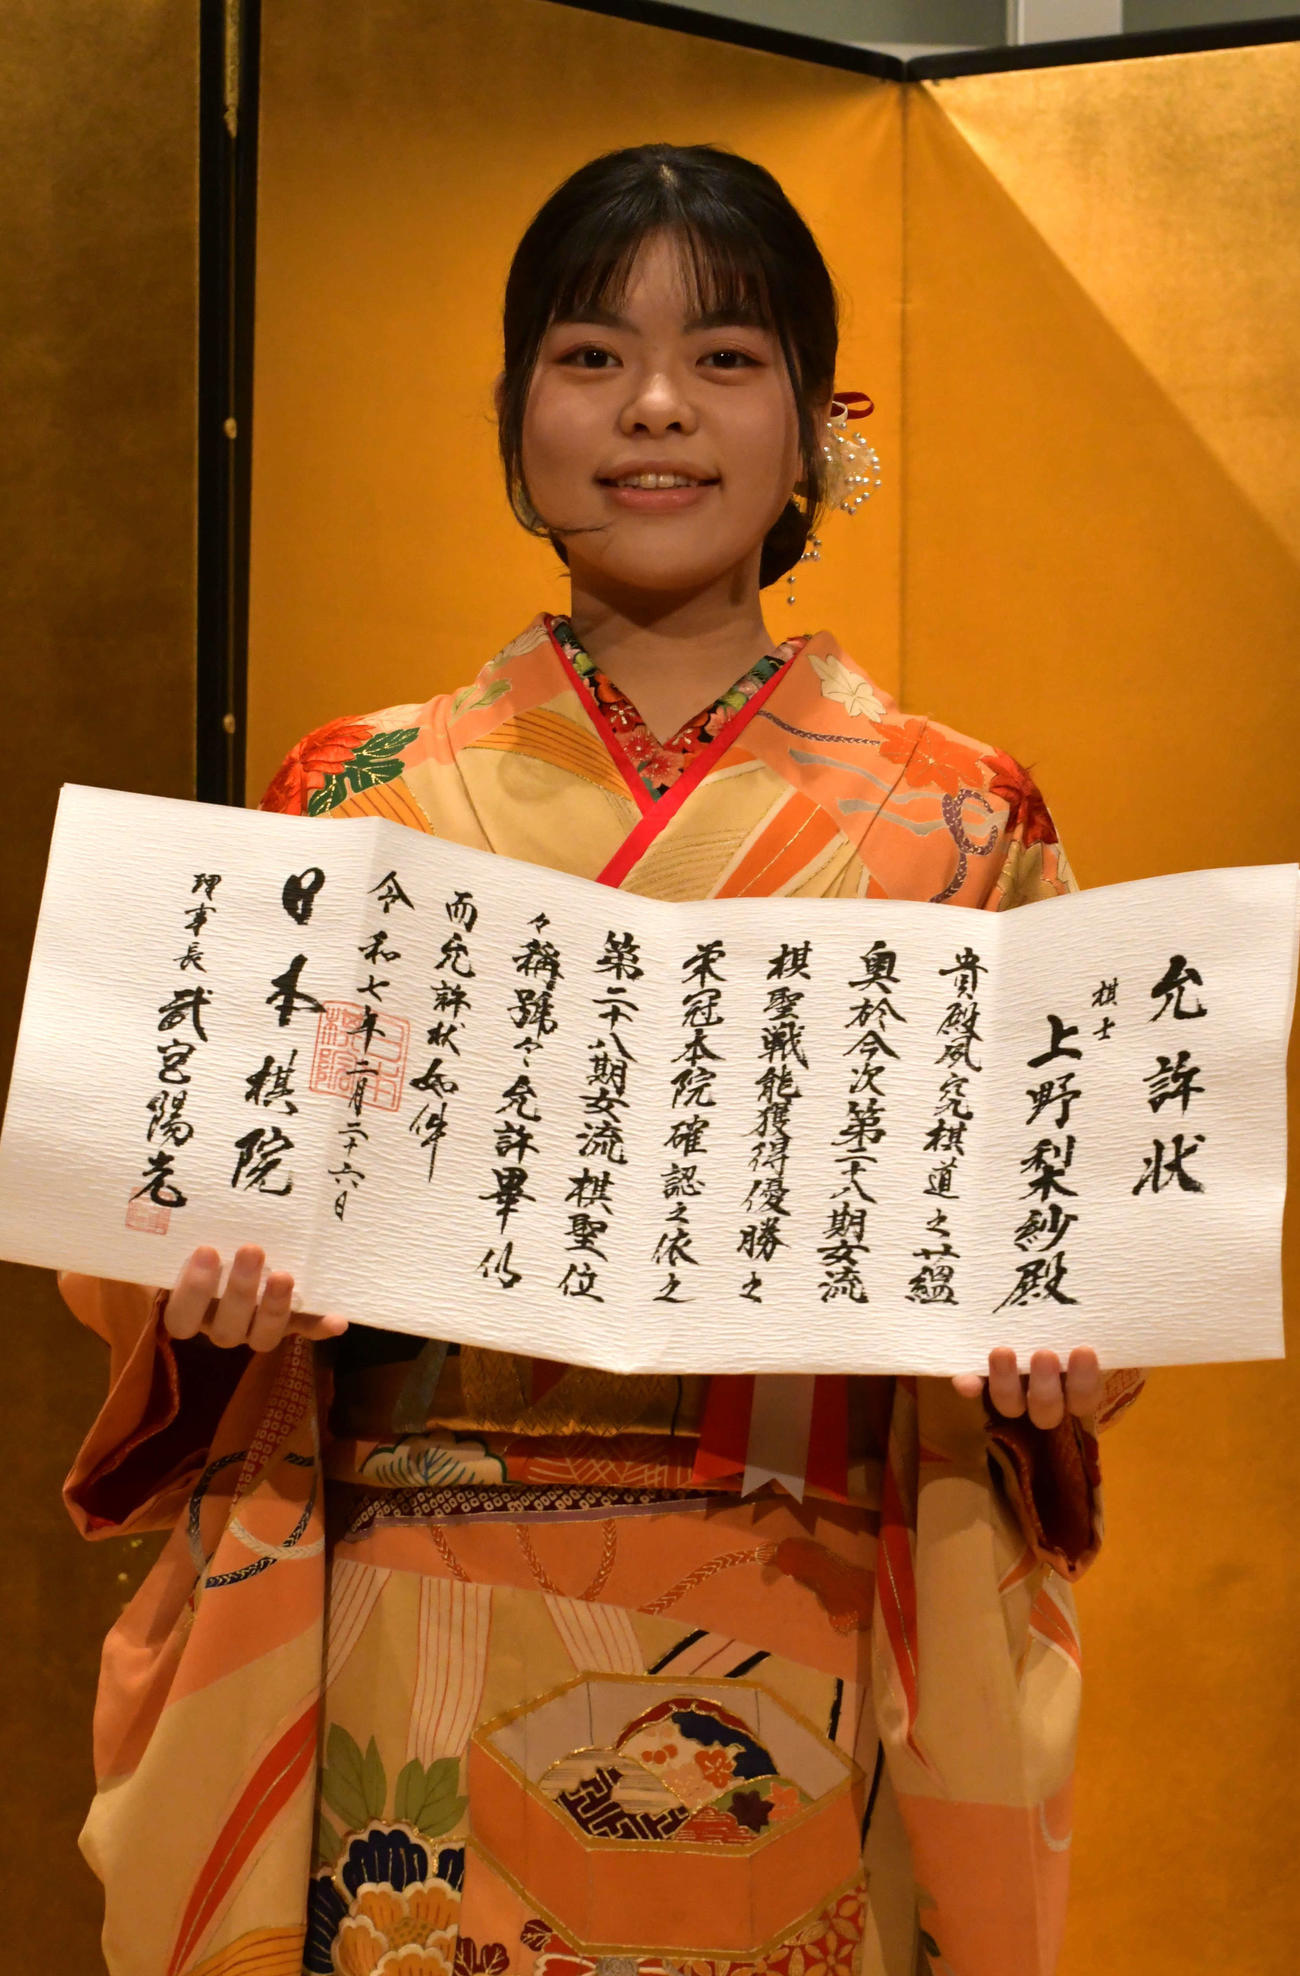 允許状
棋士
上野梨紗殿
貴殿夙究棋道之蘊
奥於今次第二十八期女流
棋聖戦能獲得優勝之
栄冠本院確認之依之
第二十八期女流棋聖位
々稱號々允許畢仍
而允許状如件
令和七年二月二十六日
日本棋院
理事長 武宮陽光